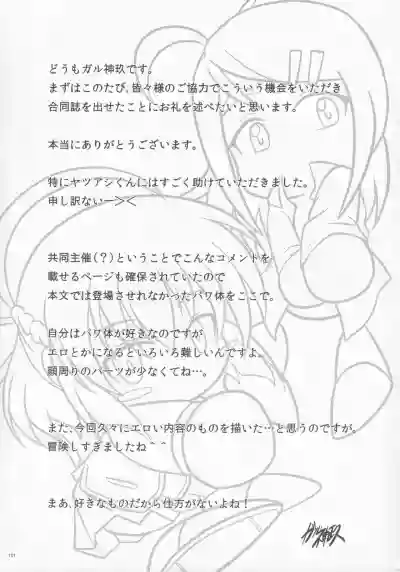 どうもガル神玖です。
まずはこのたび、皆々様のご協力でこういう機会をいただき
合同誌を出せたことにお礼を述べたいと思います。
本当にありがとうございます。
特にヤツアシくんにはすごく助けていただきました。
申し訳ないー＞＜
共同主催(？)ということでこんなコメントを
載せるページも確保されていたので
本文では登場させれなかったパワ体をここで。
自分はパワ体が好きなのですが
エロとかになるといろいろ難しいんですよ。
顔周りのパーツが少なくてね…。
また、今回久々にエロい内容のものを描いた…と思うのですが。
冒険しすぎましたね＾＾
まあ、好きなものだから仕方がないよね！
ガル神玖